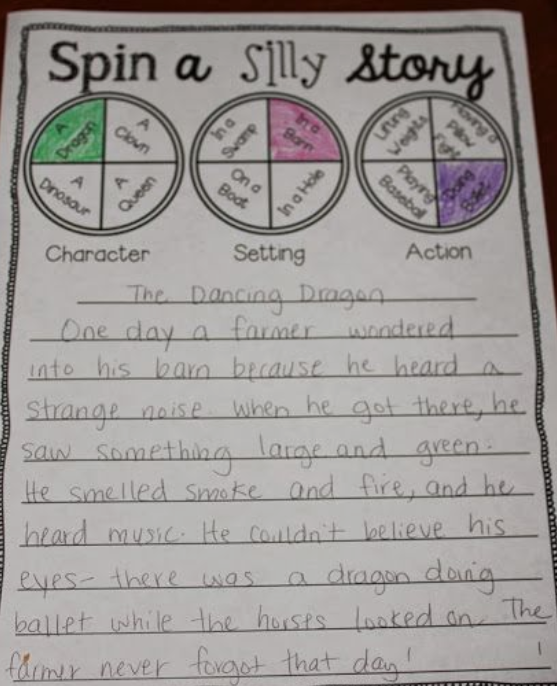 Spin a Silly Story
A Dragon
A Clown
A Dinosaur
A Queen
In a Swamp
In a Barn
On a Boat
In a Hole
Lifting Weights
Having a Pillow Fight
Playing Baseball
Doing Ballet
Character Setting Action
The Dancing Dragon
One day a farmer wondered
into his barn because he heard a
strange noise. When he got there, he
saw something large and green.
He smelled smoke and fire, and he
heard music. He couldn't believe his
eyes- there was a dragon doing
ballet while the horses looked on. The
farmer never forgot that day!